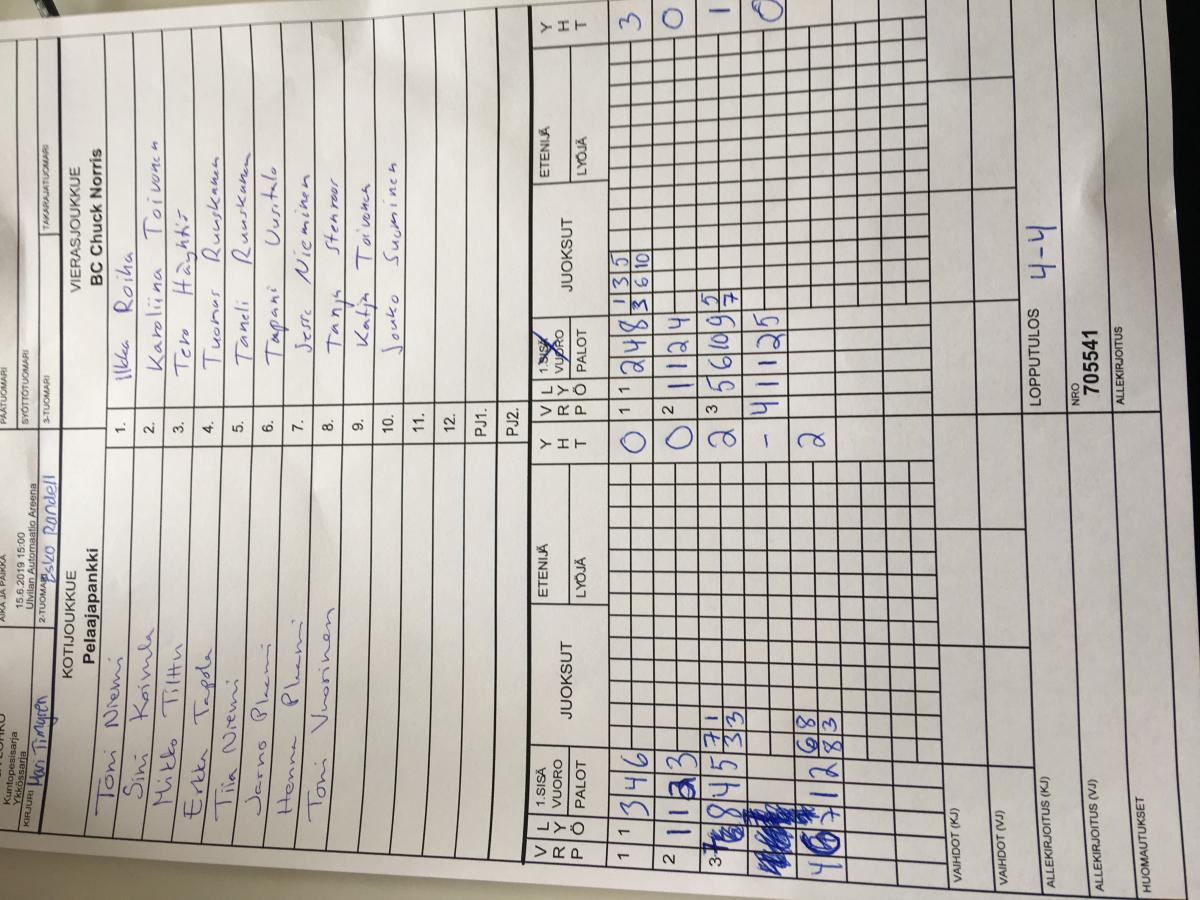 PÄÄTUOMARI
AIKA JA PAIKKA
Kuntopesisarja
Ykkössarja
15.6.2019 15:00
Ulvilan Automaatio Areena
SYÖTTÖTUOMARI
KIRJURI Mari Timgren
2-TUOMARI Esko Randell
3-TUOMARI
TAKARAJATUOMARI
KOTIJOUKKUE
Pelaajapankki
VIERASJOUKKUE
BC Chuck Norris
Toni Niemi
1. Ilkka Roiha
Sini Koimla
2. Karoliina Toivonen
Mikko Tilttu
3. Tero Häyhtiö
Erkka Tapola
4. Tuomas Ruuskanen
Tiia Niemi
5. Taneli Ruuskanen
Jarno Plaami
6. Tapani Uusitalo
Henna Plaami
7. Jesse Nieminen
Toni Vuorinen
8. Tanja Stenroor
9. Katja Toivonen
10. Jouko Suominen
11.
12.
PJ1.
PJ2.
V R P L Y Ö 1.SISÄ VUORO PALOT JUOKSUT ETENIJÄ LYÖJÄ Y H T
V R P L Y Ö 1.SISÄ VUORO PALOT JUOKSUT ETENIJÄ LYÖJÄ Y H T
1 1 3 4 6 0
1 1 2 4 8 1 3 5 3
3 6 10
2 1 1 2 3 0
2 1 1 2 4 0
3 8 4 5 7 1 2
3 3
3 5 6 10 9 5 1
7
-
4 1 1 2 5 0
4 7 1 2 6 8 2
8 3
VAIHDOT (KJ)
VAIHDOT (VJ)
ALLEKIRJOITUS (KJ)
LOPPUTULOS 4-4
ALLEKIRJOITUS (VJ)
NRO
705541
HUOMAUTUKSET
ALLEKIRJOITUS